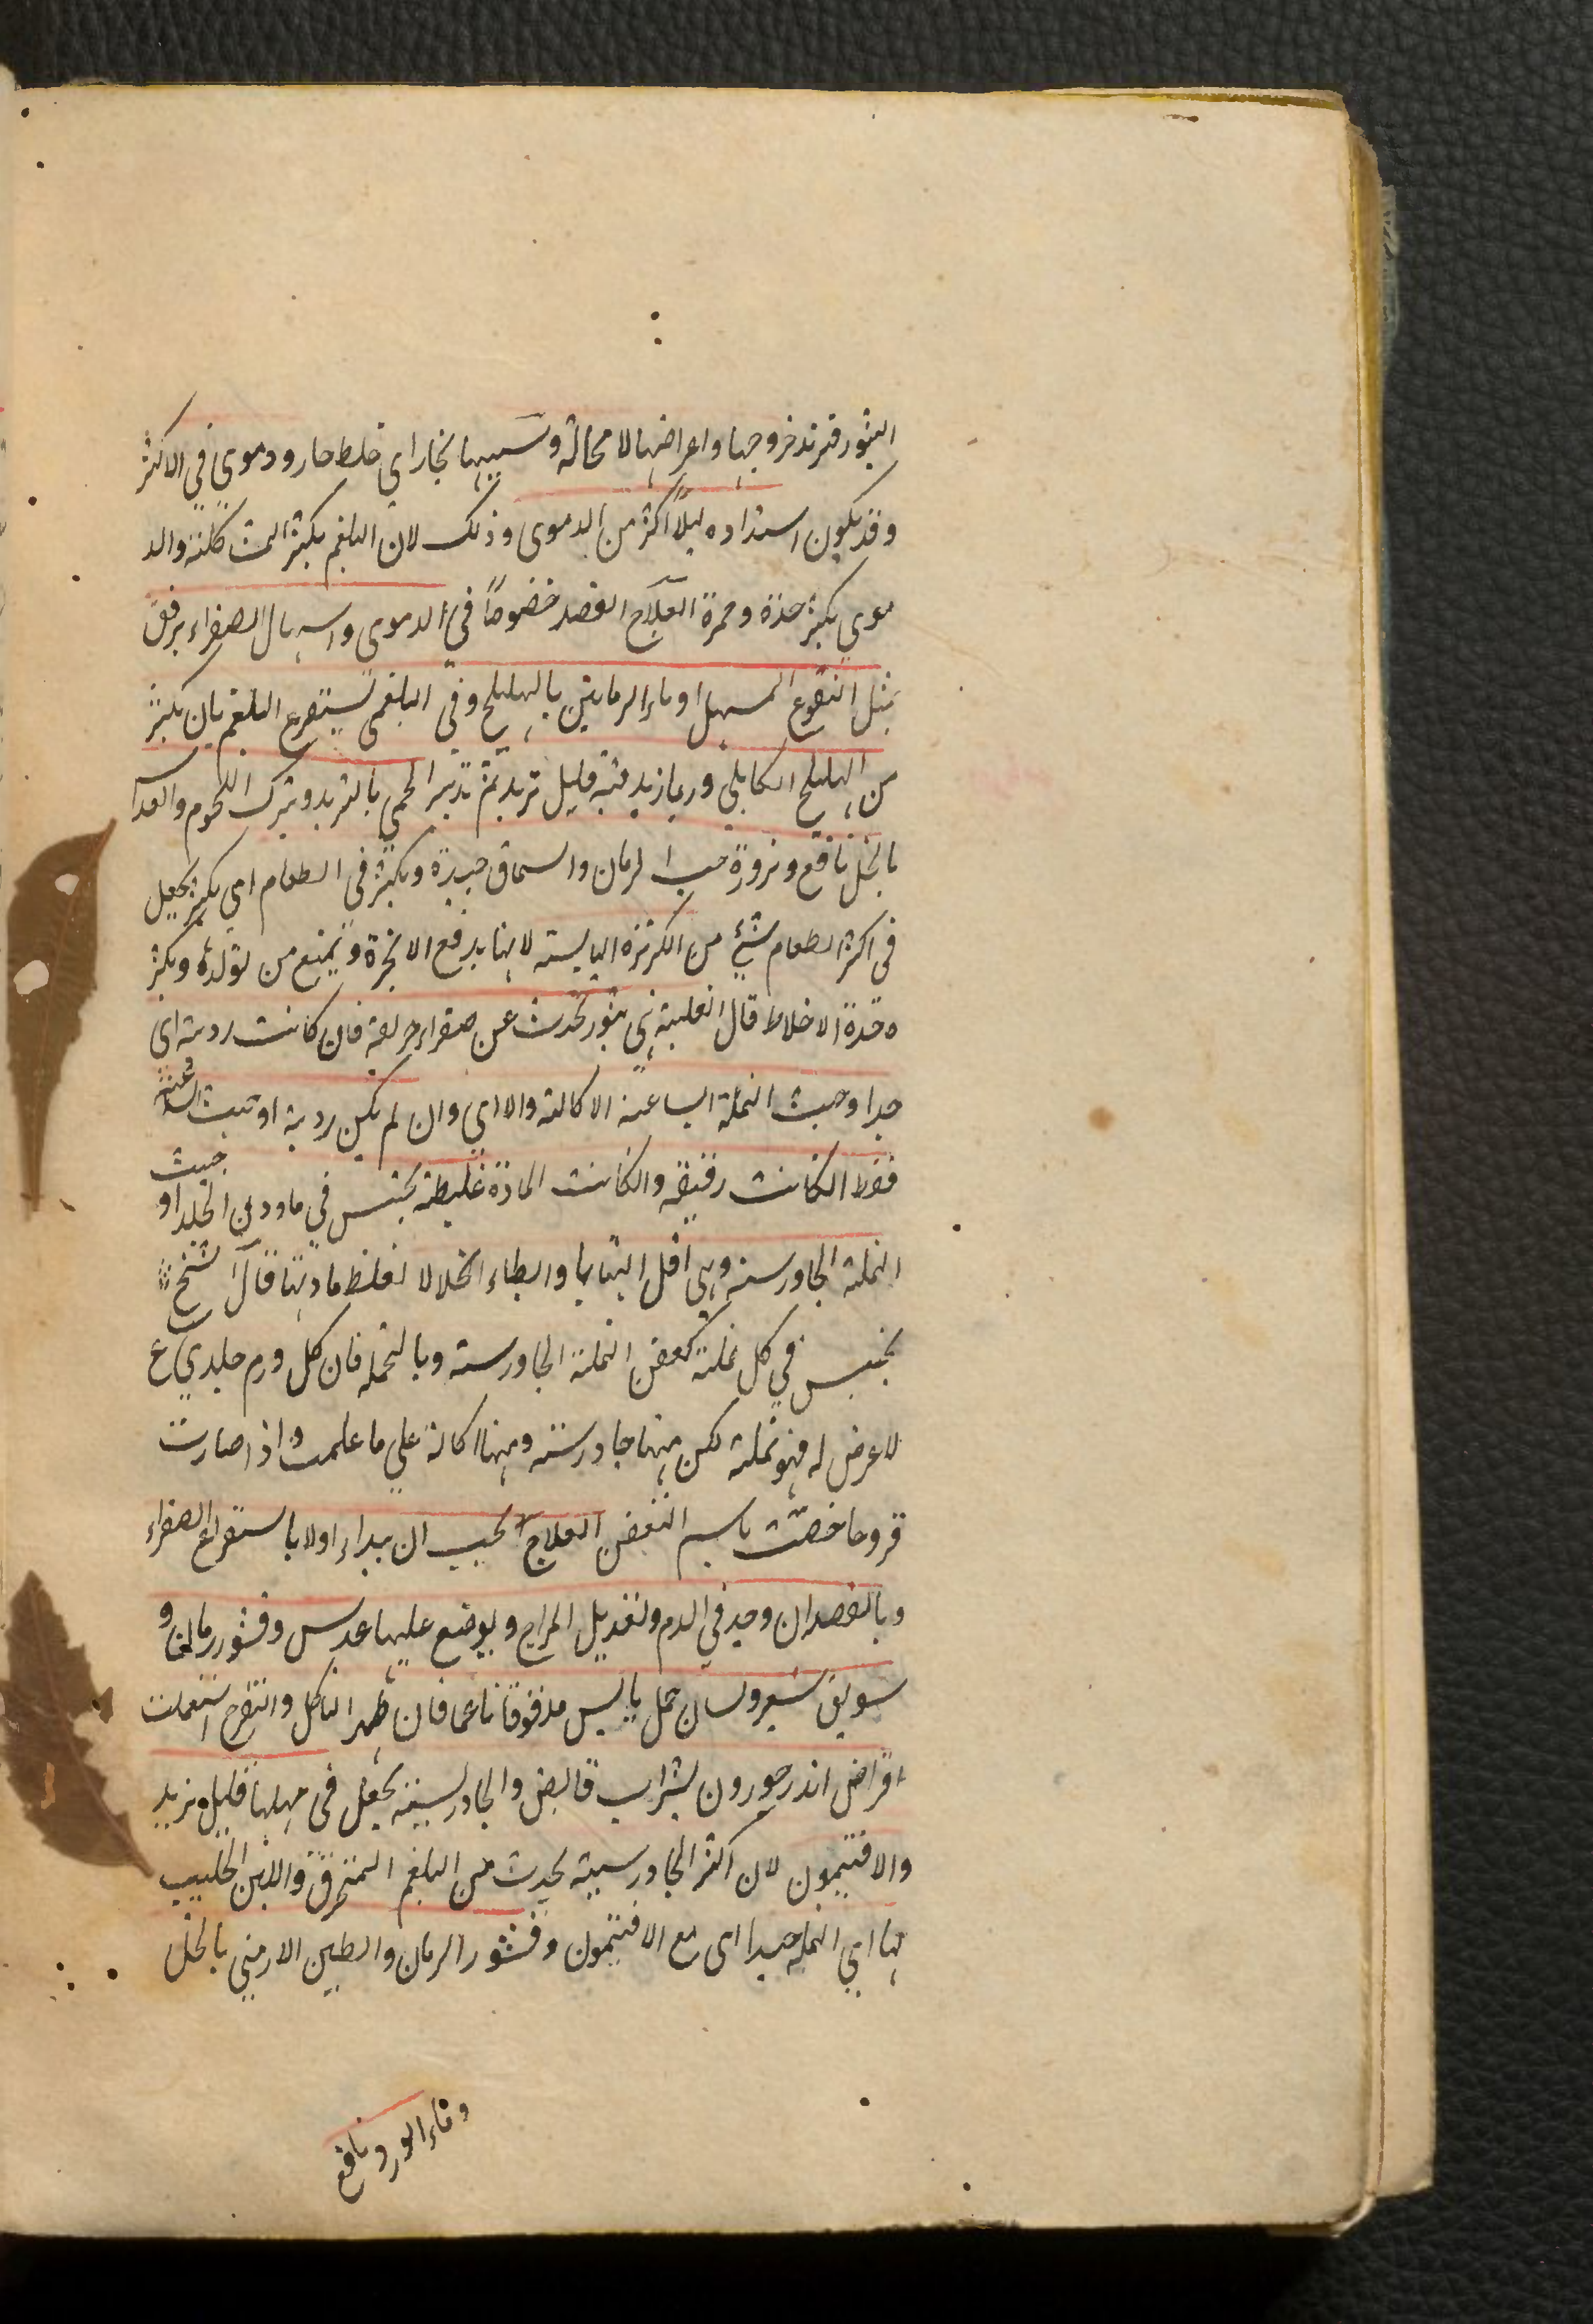 البثور فتزند خروجها واعراضها لا محالة وسببها بخار اي خلط حار ودموي في الاكثر
وقد يكون اشتداده ليلاً اكثر من الدموى وذلك لان البلغم يكثر المث كلته والد
موي يكثر حدة وحمرة العلاج الفصد خصوصاً في الدموى واسهال الصفراء برفق
بمثل النقوع المسهل او ماء الرمانين بالهليلج وفي البلغمى يستفرغ البلغم بان يكثر
من الهليلج الكابلي وربما زيد فيه قليل تربد ثم تدبير الحمى بالتربد ويترك اللحوم والعدس
بالخل نافع ومزورة حب الرمان والسماق جيدة ويكثر في الطعام اي يكثر بجعل
فى اكثر الطعام شئ من الكزبزه اليابسته لانها يدفع الابخرة ويمنع من تولده ويكثر
ه حدة الاخلاط قال النملية هي بثور تحدث عن صفراء حريفة فان كانت ردية اي
جدا وحبث النملة الساعية الاكالة والا اي وان لم يكن ردية اوجبت الساعية
فقط الكانت رقيقه والكانت المادة غليظة يحتبس في مادون الجلد او جبت
النملة الجاورسنه وهي اقل التهابا وابطاء انحلالا لغلظ مادتها قال الشيخ
يحتبس في كل نملة كعفن النملة الجاورسته وبالجمله فان كل ورم جلدي ع
لا عرض له فهو نملة لكن منها جاورسته ومنها اكالة علي ما علمت واذا صارت
قروحا خصت باسم التعفن العلاج يجب ان يبداء اولا باستفراغ الصفراء
وبالفصد ان وجد في الدم وتعديل المزاج ويوضع عليها عدس وقشور رمان و
سويق شعير ولسان حمل يابس مدقوقا ناعما فان ظهر التاكل والتقرح استعملت
اقراض اندرحورون بشراب قابض والجاورسية يجعل فى مسهلها قليل تربد
والافتيمون لان اكثر الجاورسية يحدث من البلغم المحترق واللبن الحليب
بها اي النمله جيدا اى مع الافتيمون وقشور الرمان والطين الارمني بالخل
وماء الورد نافع